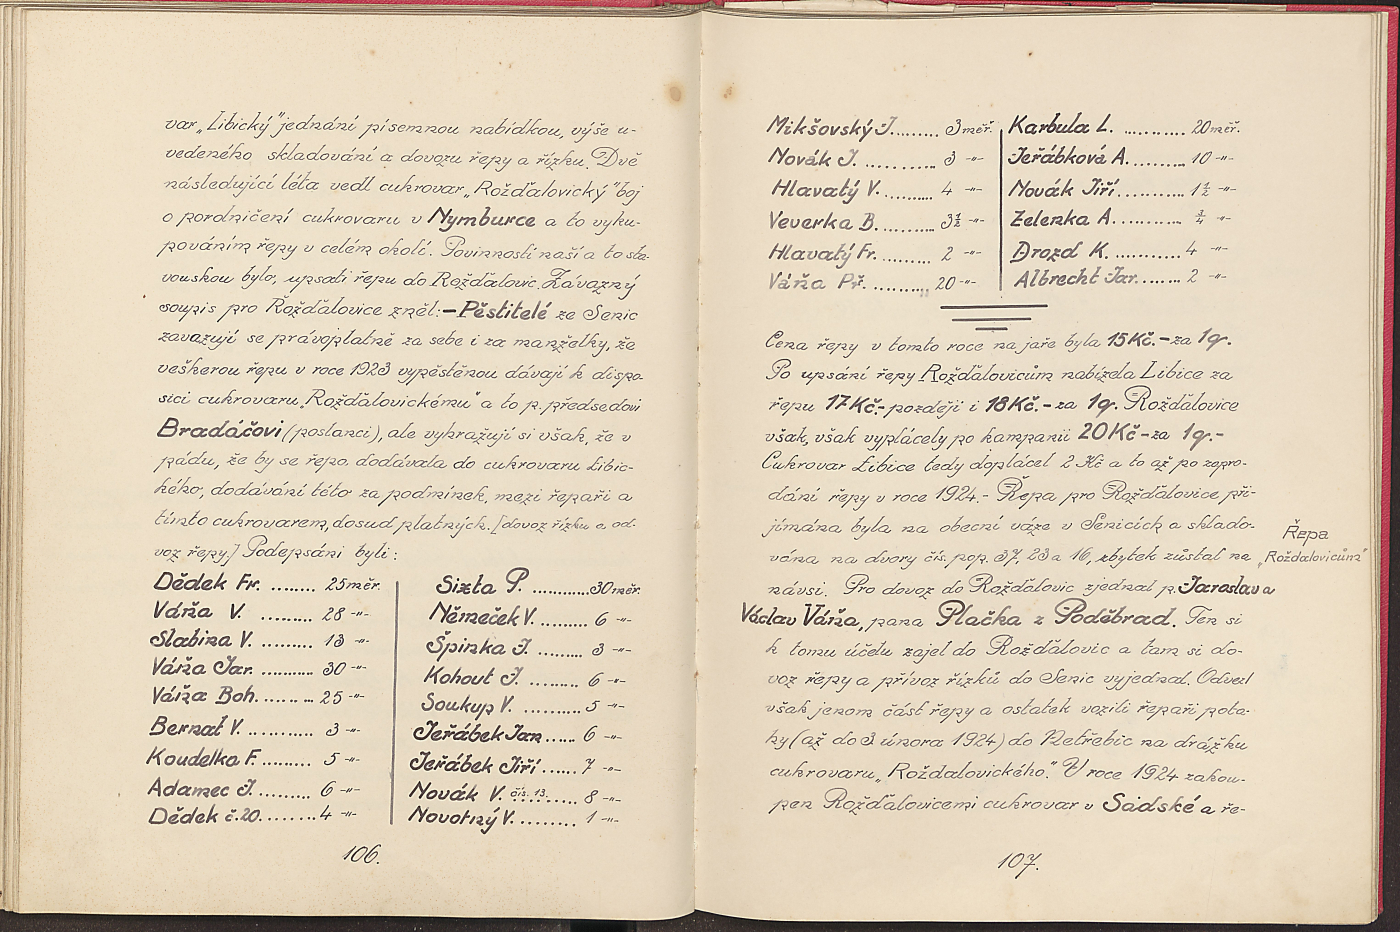 var „Libický“ jednání písemnou nabídkou, výše u-
vedeného skladování a dovozu řepy a řízku. Dvě
následující léta vedl cukrovar „Rožďalovický“ boj
o porolničení cukrovaru v Nymburce a to vyku-
pováním řepy v celém okolí. Povinností naší a to sta-
vouskou bylo, upsati řepu do Rožďalovic. Závazný
soupis pro Rožďalovice zněl: – Pěstitelé ze Senic
zavazují se právoplatně za sebe i za manželky, že
veškerou řepu v roce 1923 vypěstěnou dávají k dispo-
sici cukrovaru „Rožďalovickému“ a to p. předsedovi
Bradáčovi (poslanci), ale vyhražují si však, že v
pádu, že by se řepa dodávala do cukrovaru Libic-
kého, dodávání této za podmínek, mezi řepaři a
tímto cukrovarem, dosud platných. [dovoz řízku a od-
voz řepy.] Podepsáni byli:
Dědek Fr. ........ 25 měr.
Váňa V. ......... 28 -„-
Slabina V. ......... 13 -„-
Váňa Jar. ........... 30 -„-
Váňa Boh. ........... 25 -„-
Bernat V. ............ 3 -„-
Koudelka F. ......... 5 -„-
Adamec J. ......... 6 -„-
Dědek č. 20. ........ 4 -„-
Sixta P. ............ 30 měr.
Němeček V. ......... 6 -„-
Špinka J. ......... 3 -„-
Kohout J. ......... 6 -„-
Soukup V. ........... 5 -„-
Jeřábek Jan ...... 6 -„-
Jeřábek Jiří ...... 7 -„-
Novák V. čís. 13. ........ 8 -„-
Novotný V. ......... 1 -„-
106.
Mikšovský J. ....... 3 měř.
Novák J. ........... 3 -„-
Hlavatý V. ......... 4 -„-
Veverka B. ......... 3½ -„-
Hlavatý Fr. ......... 2 -„-
Váňa Př. ......... 20 -„-
Karbula L. ........... 20 měr.
Jeřábková A. ........ 10 -„-
Novák Jiří ........... 1½ -„-
Zelenka A. ........... ¾ -„-
Drozd K. ........... 4 -„-
Albrecht Jar. ....... 2 -„-
Cena řepy v tomto roce na jaře byla 15 Kč. – za 1 q.
Po upsání řepy Rožďalovicům nabízela Libice za
řepu 17 Kč. – později i 18 Kč. – za 1 q. Rožďalovice
však, však vyplácely po kampani 20 Kč – za 1 q. –
Cukrovar Libice tedy doplácel 2 Kč a to až po zapro-
dání řepy v roce 1924. – Řepa pro Rožďalovice při-
jímána byla na obecní váze v Senicích a sklado-
vána na dvory čís. pop. 37, 23 a 16, zbytek zůstal na
návsi. Pro dovoz do Rožďalovic zjednal p. Jaroslav a
Václav Váňa, pana Plačka z Poděbrad. Ten si
k tomu účelu zajel do Rožďalovic a tam si do-
voz řepy a přívoz řízků do Senic vyjednal. Odvezl
však jenom část řepy a ostatek vozili řepaři pota-
hy (až do 3 února 1924) do Netřebic na drážku
cukrovaru „Rožďalovického.“ V roce 1924 zakou-
pen Rožďalovicemi cukrovar v Sadské a ře-
Řepa
„Rožďalovicům“
107.